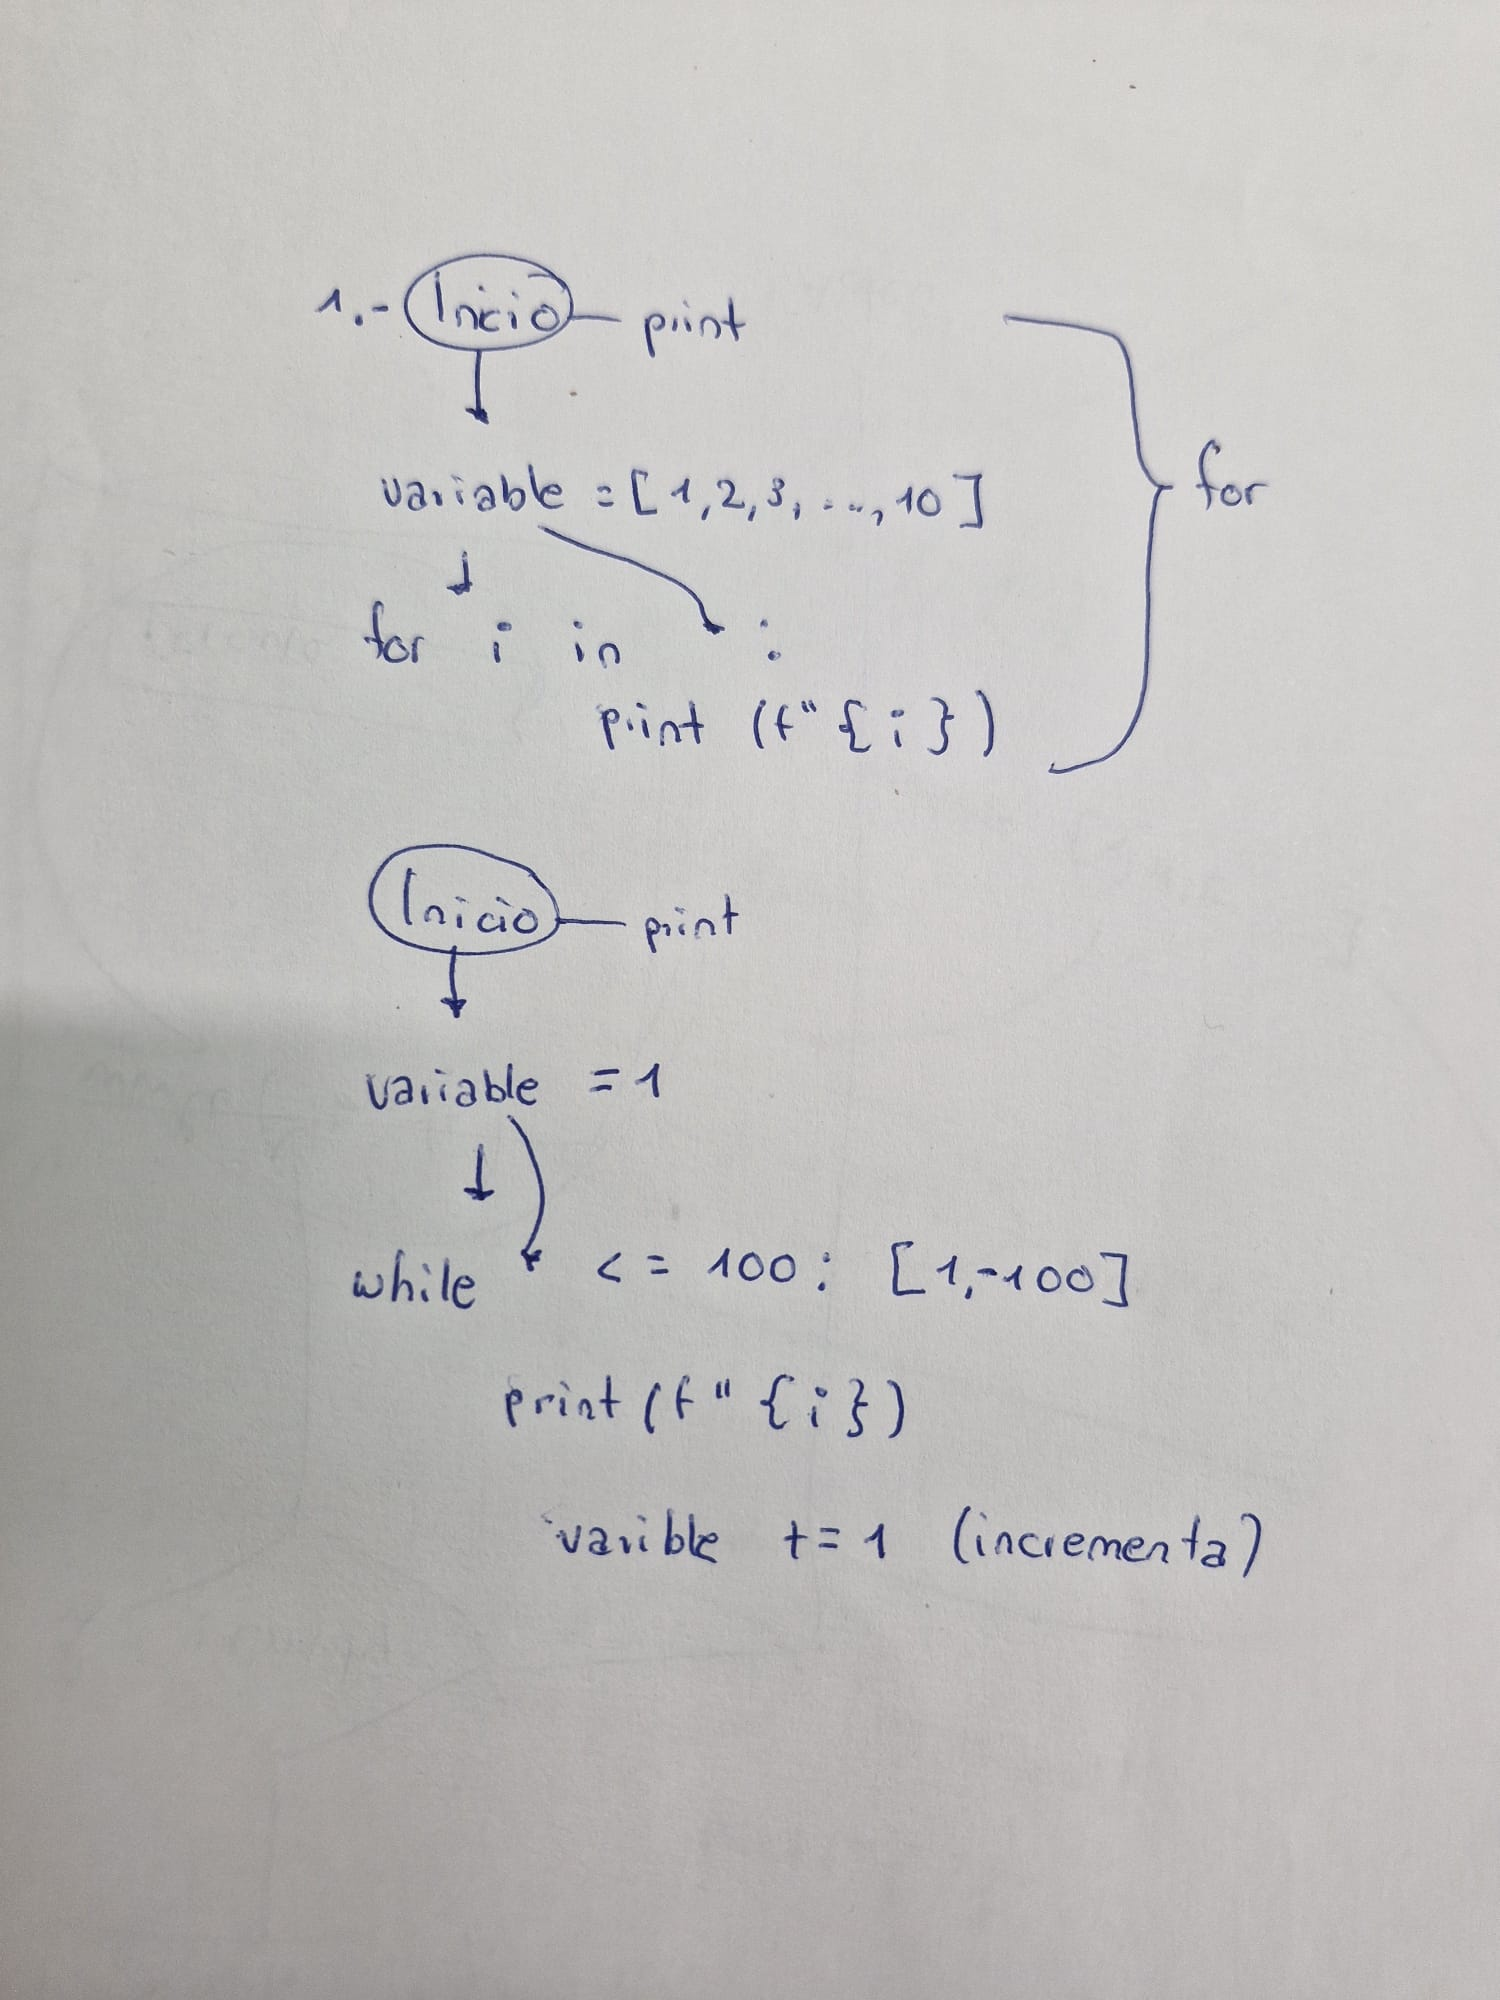 1.- Inicio — print
variable = [1,2,3,...,10]
for
for i in :
print (f"{i})
Inicio — print
variable = 1
while <= 100: [1,-100]
print (f"{i})
varible += 1 (incrementa)